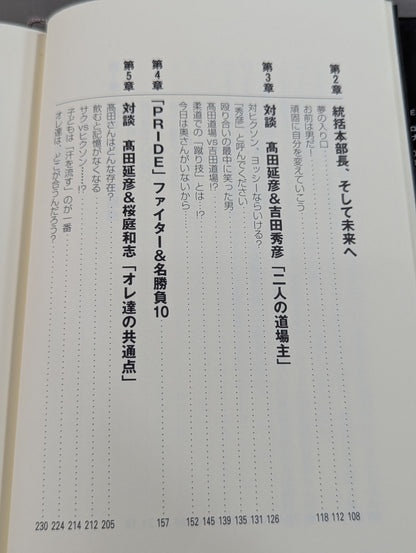 第2章 統括本部長、そして未来へ 108
夢の入り口 112
お前は男だ! 118
頑固に自分を変えていこう
第3章 対談 髙田延彦&吉田秀彦「二人の道場主」 126
対ヒクソン、ヨッシーならいける? 131
「秀彦」と呼んでください 135
殴り合いの最中に笑った男 139
髙田道場vs吉田道場!? 145
柔道での「蹴り技」とは…!? 149
今日は奥さんがいないから… 152
第4章 「PRIDE」ファイター&名勝負10 157
第5章 対談 髙田延彦&桜庭和志「オレ達の共通点」 205
髙田さんはどんな存在? 212
飲むと記憶がなくなる 214
サクvsヒクソン……!? 224
子どもは「汗を流す」のが一番 230
オレ達は、どこが危うんだろう?